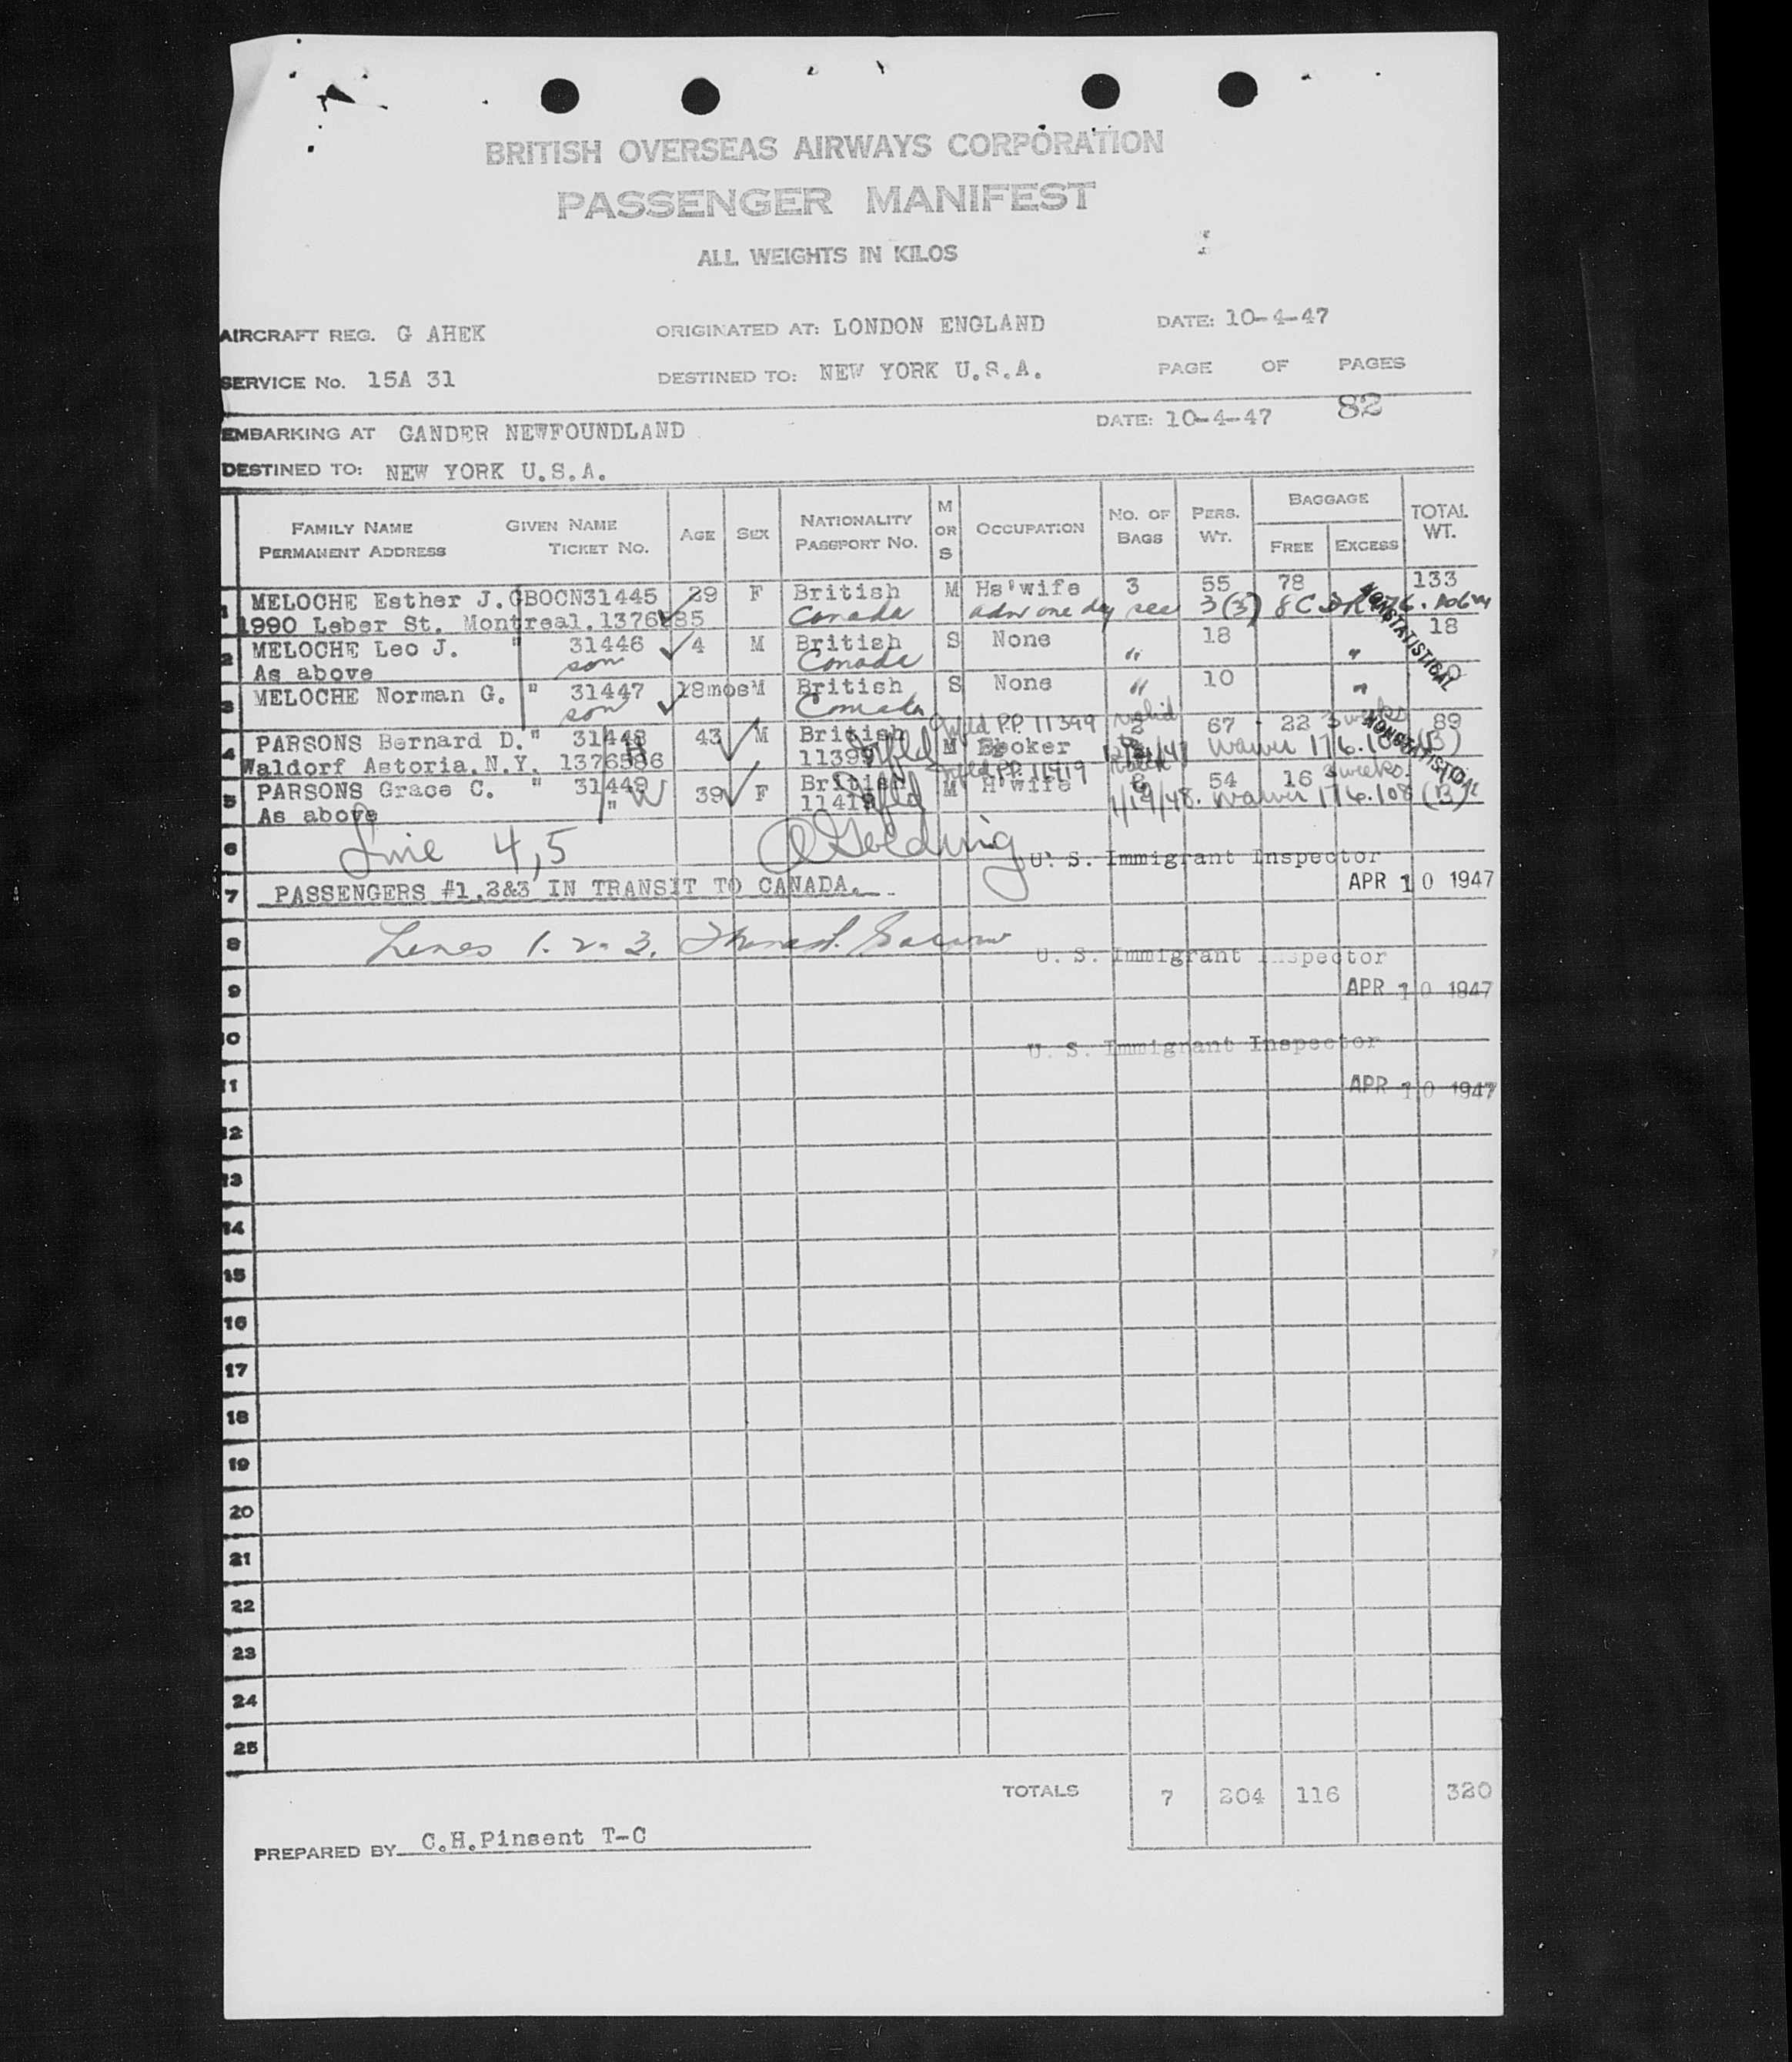 BRITISH OVERSEAS AIRWAYS CORPORATION
PASSENGER MANIFEST
ALL WEIGHTS IN KILOS
AIRCRAFT REG. G AHEK ORIGINATED AT: LONDON ENGLAND DATE: 10-4-47
SERVICE No. 15A 31 DESTINED TO: NEW YORK U.S.A. PAGE OF PAGES
82
EMBARKING AT GANDER NEWFOUNDLAND DATE: 10-4-47
DESTINED TO: NEW YORK U.S.A.
FAMILY NAME GIVEN NAME AGE SEX NATIONALITY M OR S OCCUPATION NO. OF BAGS PERS. WT. BAGGAGE TOTAL WT.
PERMANENT ADDRESS TICKET NO. PASSPORT NO. FREE EXCESS
1 MELOCHE Esther J. GBOCN31445 29 F British M Hs'wife 3 55 78 133
1990 Leber St. Montreal. Canada adm one day 3(3)
NONSTATISTICAL
2 MELOCHE Leo J. " 31446 4 M British S None 18 18
As above son Canada " "
3 MELOCHE Norman G. " 31447 18mos M British S None 10
son Canada " "
Nfld PP. 11399 valid 3 weeks
4 PARSONS Bernard D. " 31448 43 M British M 2 67 22 89
Waldorf Astoria. N.Y. 1376586 11399 Nfld Waiver 176.108 (B)
NONSTATISTICAL
Nfld PP. 11419 3 weeks
5 PARSONS Grace C. " 31449 W 39 F British M H'wife 54 16
As above " 11419 Nfld 1/19/48. Waiver 176.108 (B)
6 Line 4,5 Golding U. S. Immigrant Inspector
7 PASSENGERS #1,2&3 IN TRANSIT TO CANADA. APR 10 1947
8 Lines 1. 2. 3. U. S. Immigrant Inspector
9 APR 10 1947
10 U. S. Immigrant Inspector
11 APR 10 1947
12
13
14
15
16
17
18
19
20
21
22
23
24
25
TOTALS 7 204 116 320
PREPARED BY C.H.Pinsent T-C